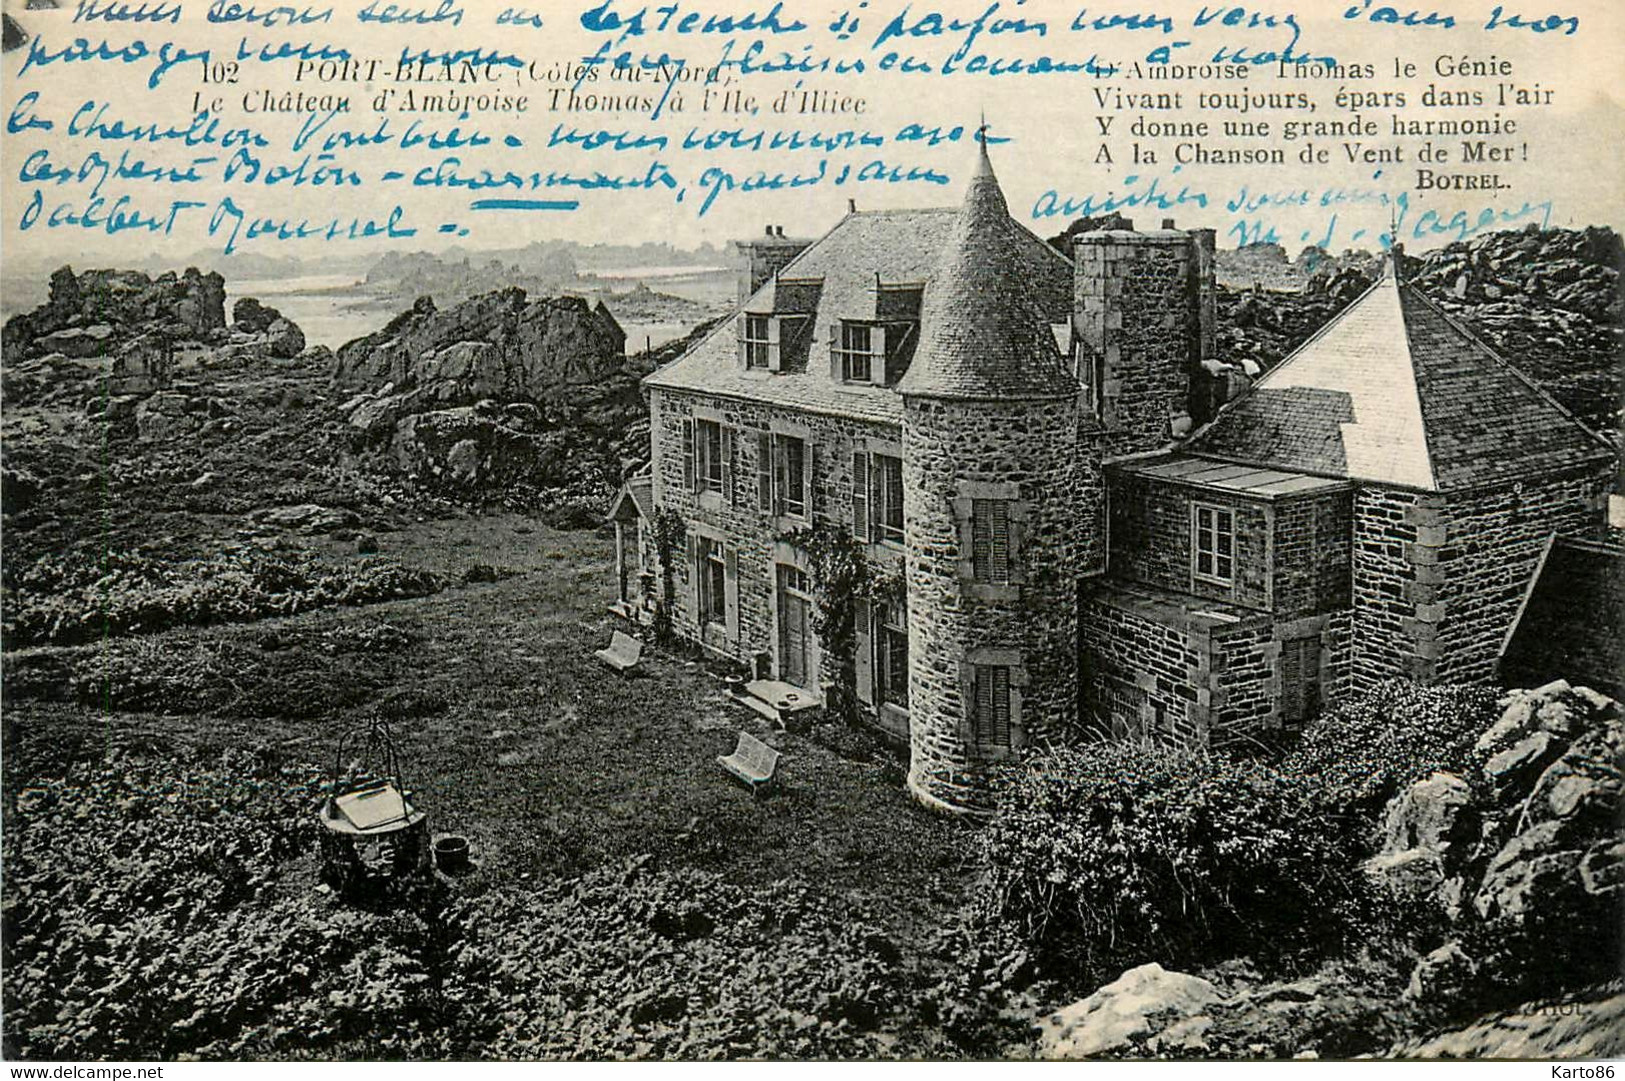 nous serons seuls en Septembre si parfois vous venez dans nos
parages vous nous ferez plaisir en venant à nous
102 PORT-BLANC (Côtes-du-Nord).
Le Château d'Ambroise Thomas, à l'Ile d'Illiec
D'Ambroise Thomas le Génie
Vivant toujours, épars dans l'air
Y donne une grande harmonie
A la Chanson de Vent de Mer!
BOTREL.
les vont bien. nous voisinons avec
les - charmants, grands amis
d'albert Roussel -.
amitiés
Phot
Karto86